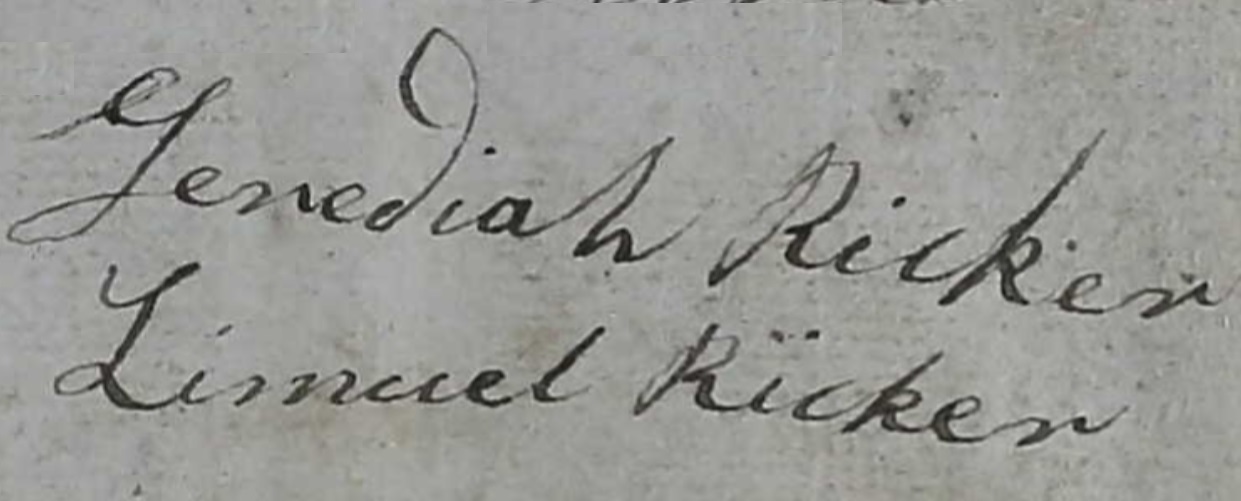 Jenediah Ricker
Limuel Ricker